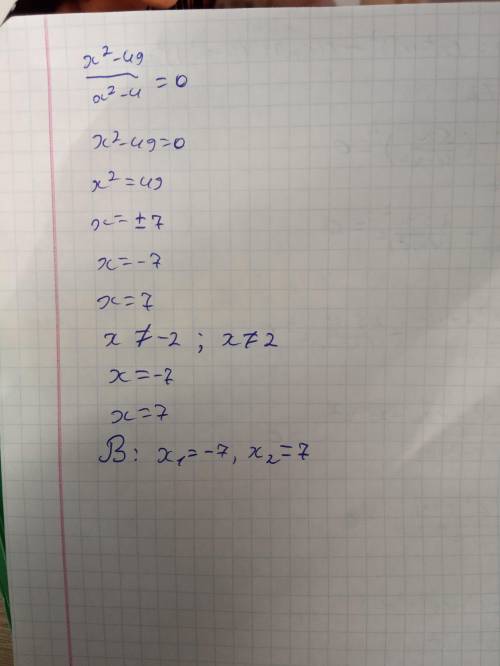 x²-49
x²-4 =0
x²-49=0
x²=49
x=±7
x=-7
x=7
x≠-2; x≠2
x=-7
x=7
В: x₁=-7, x₂=7